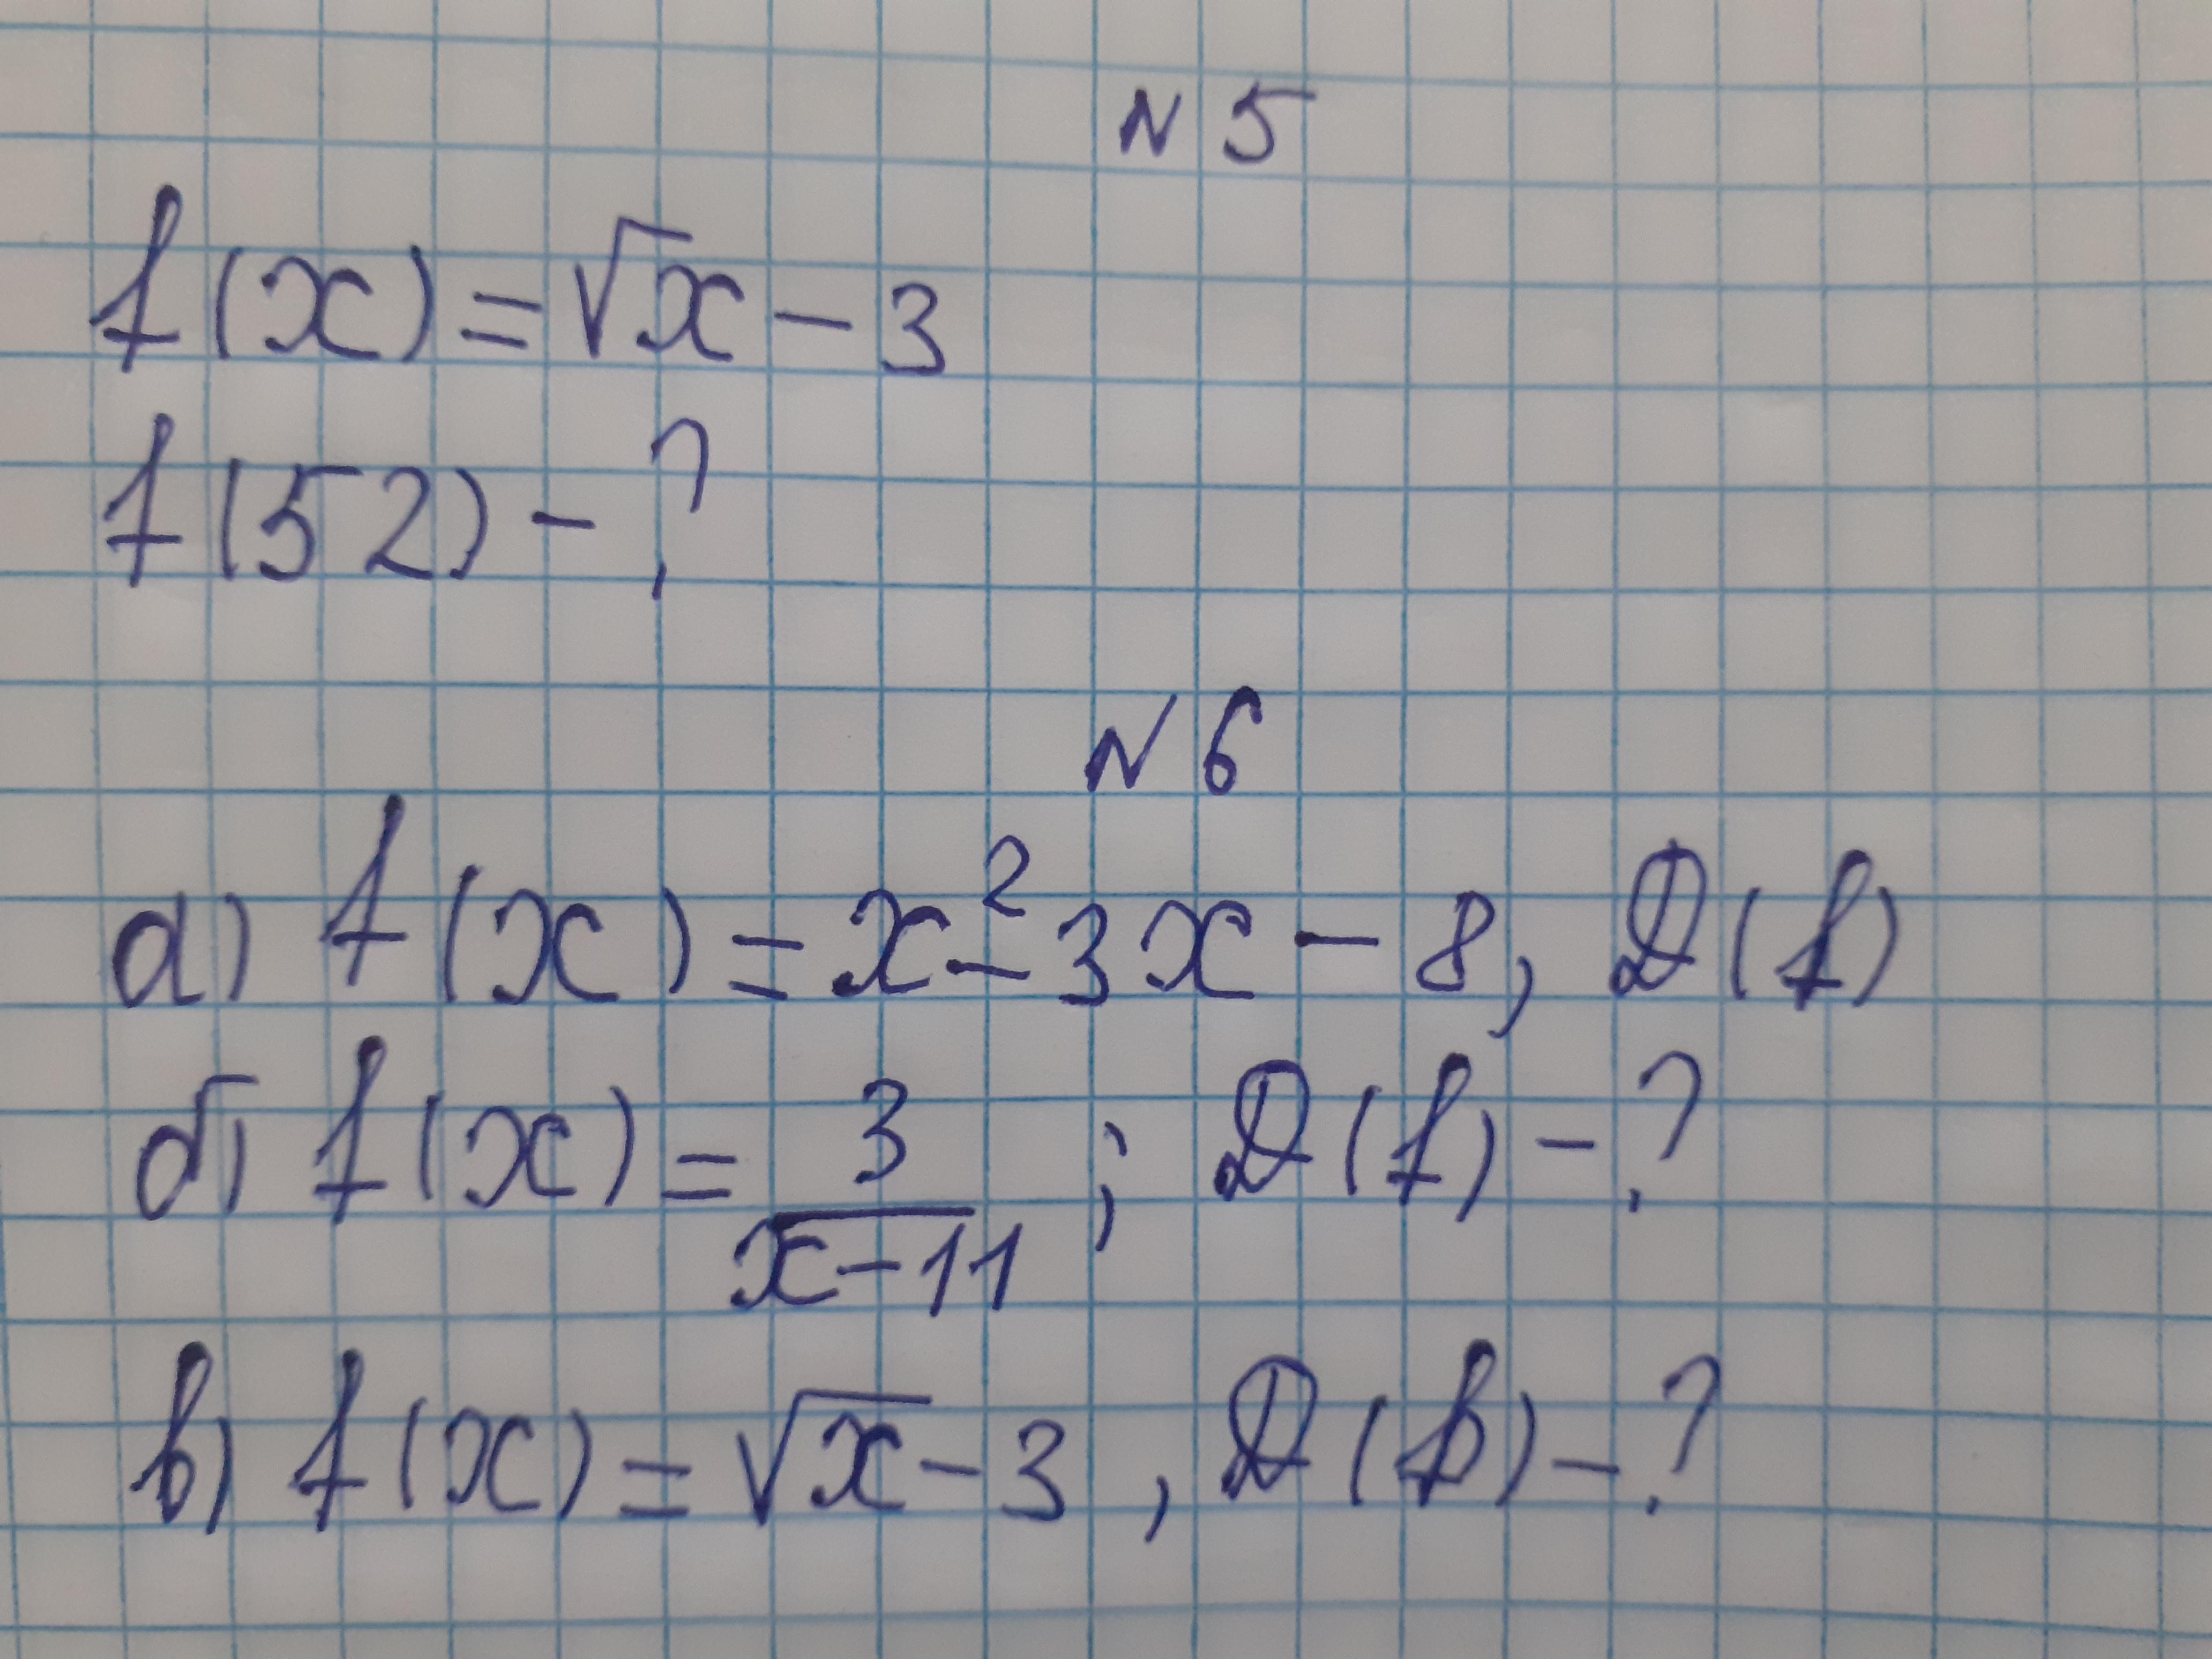 N 5
f(x) = √x - 3
f(52) - ?
N 6
а) f(x) = x² - 3x - 8, D(f)
б) f(x) = 3/(x-11) ; D(f) - ?
в) f(x) = √x - 3 , D(f) - ?